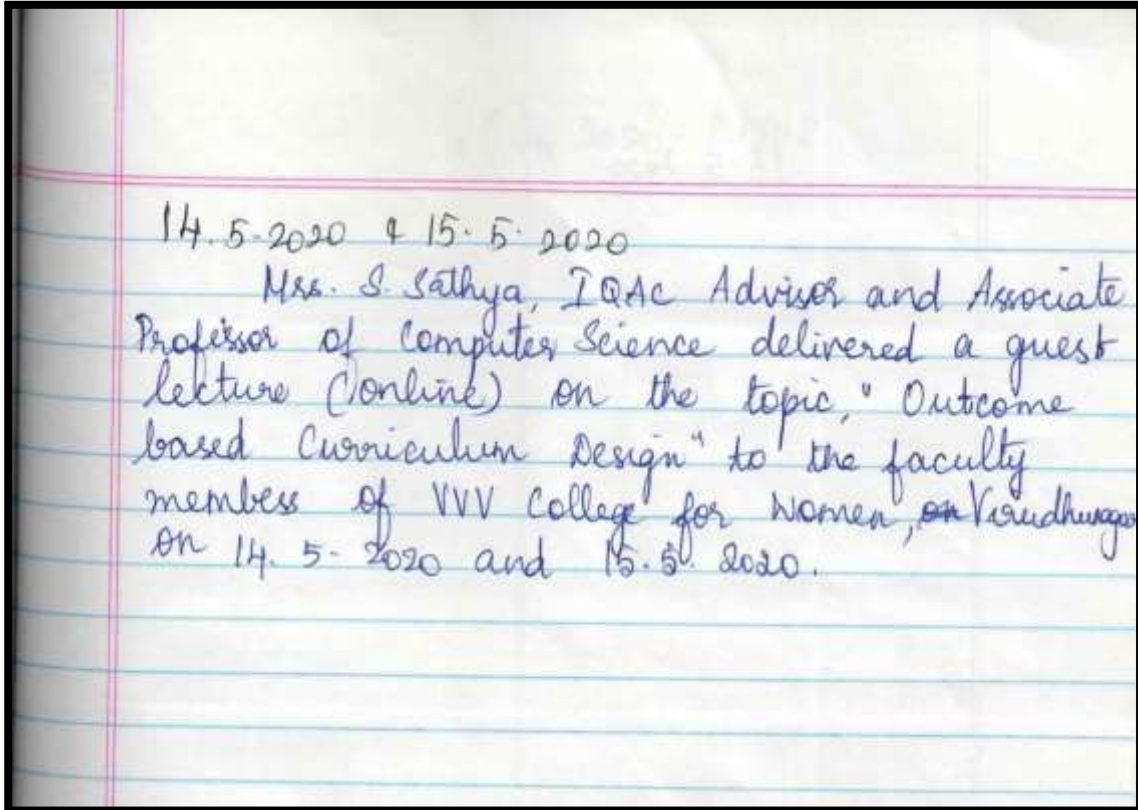 14.5.2020 & 15.5.2020
Mrs. S. Sathya, IQAC Advisor and Associate
Professor of Computer Science delivered a guest
lecture (online) on the topic, "Outcome
based Curriculum Design" to the faculty
members of VVV College for Women, on Virudhunagar
on 14.5.2020 and 15.5.2020.